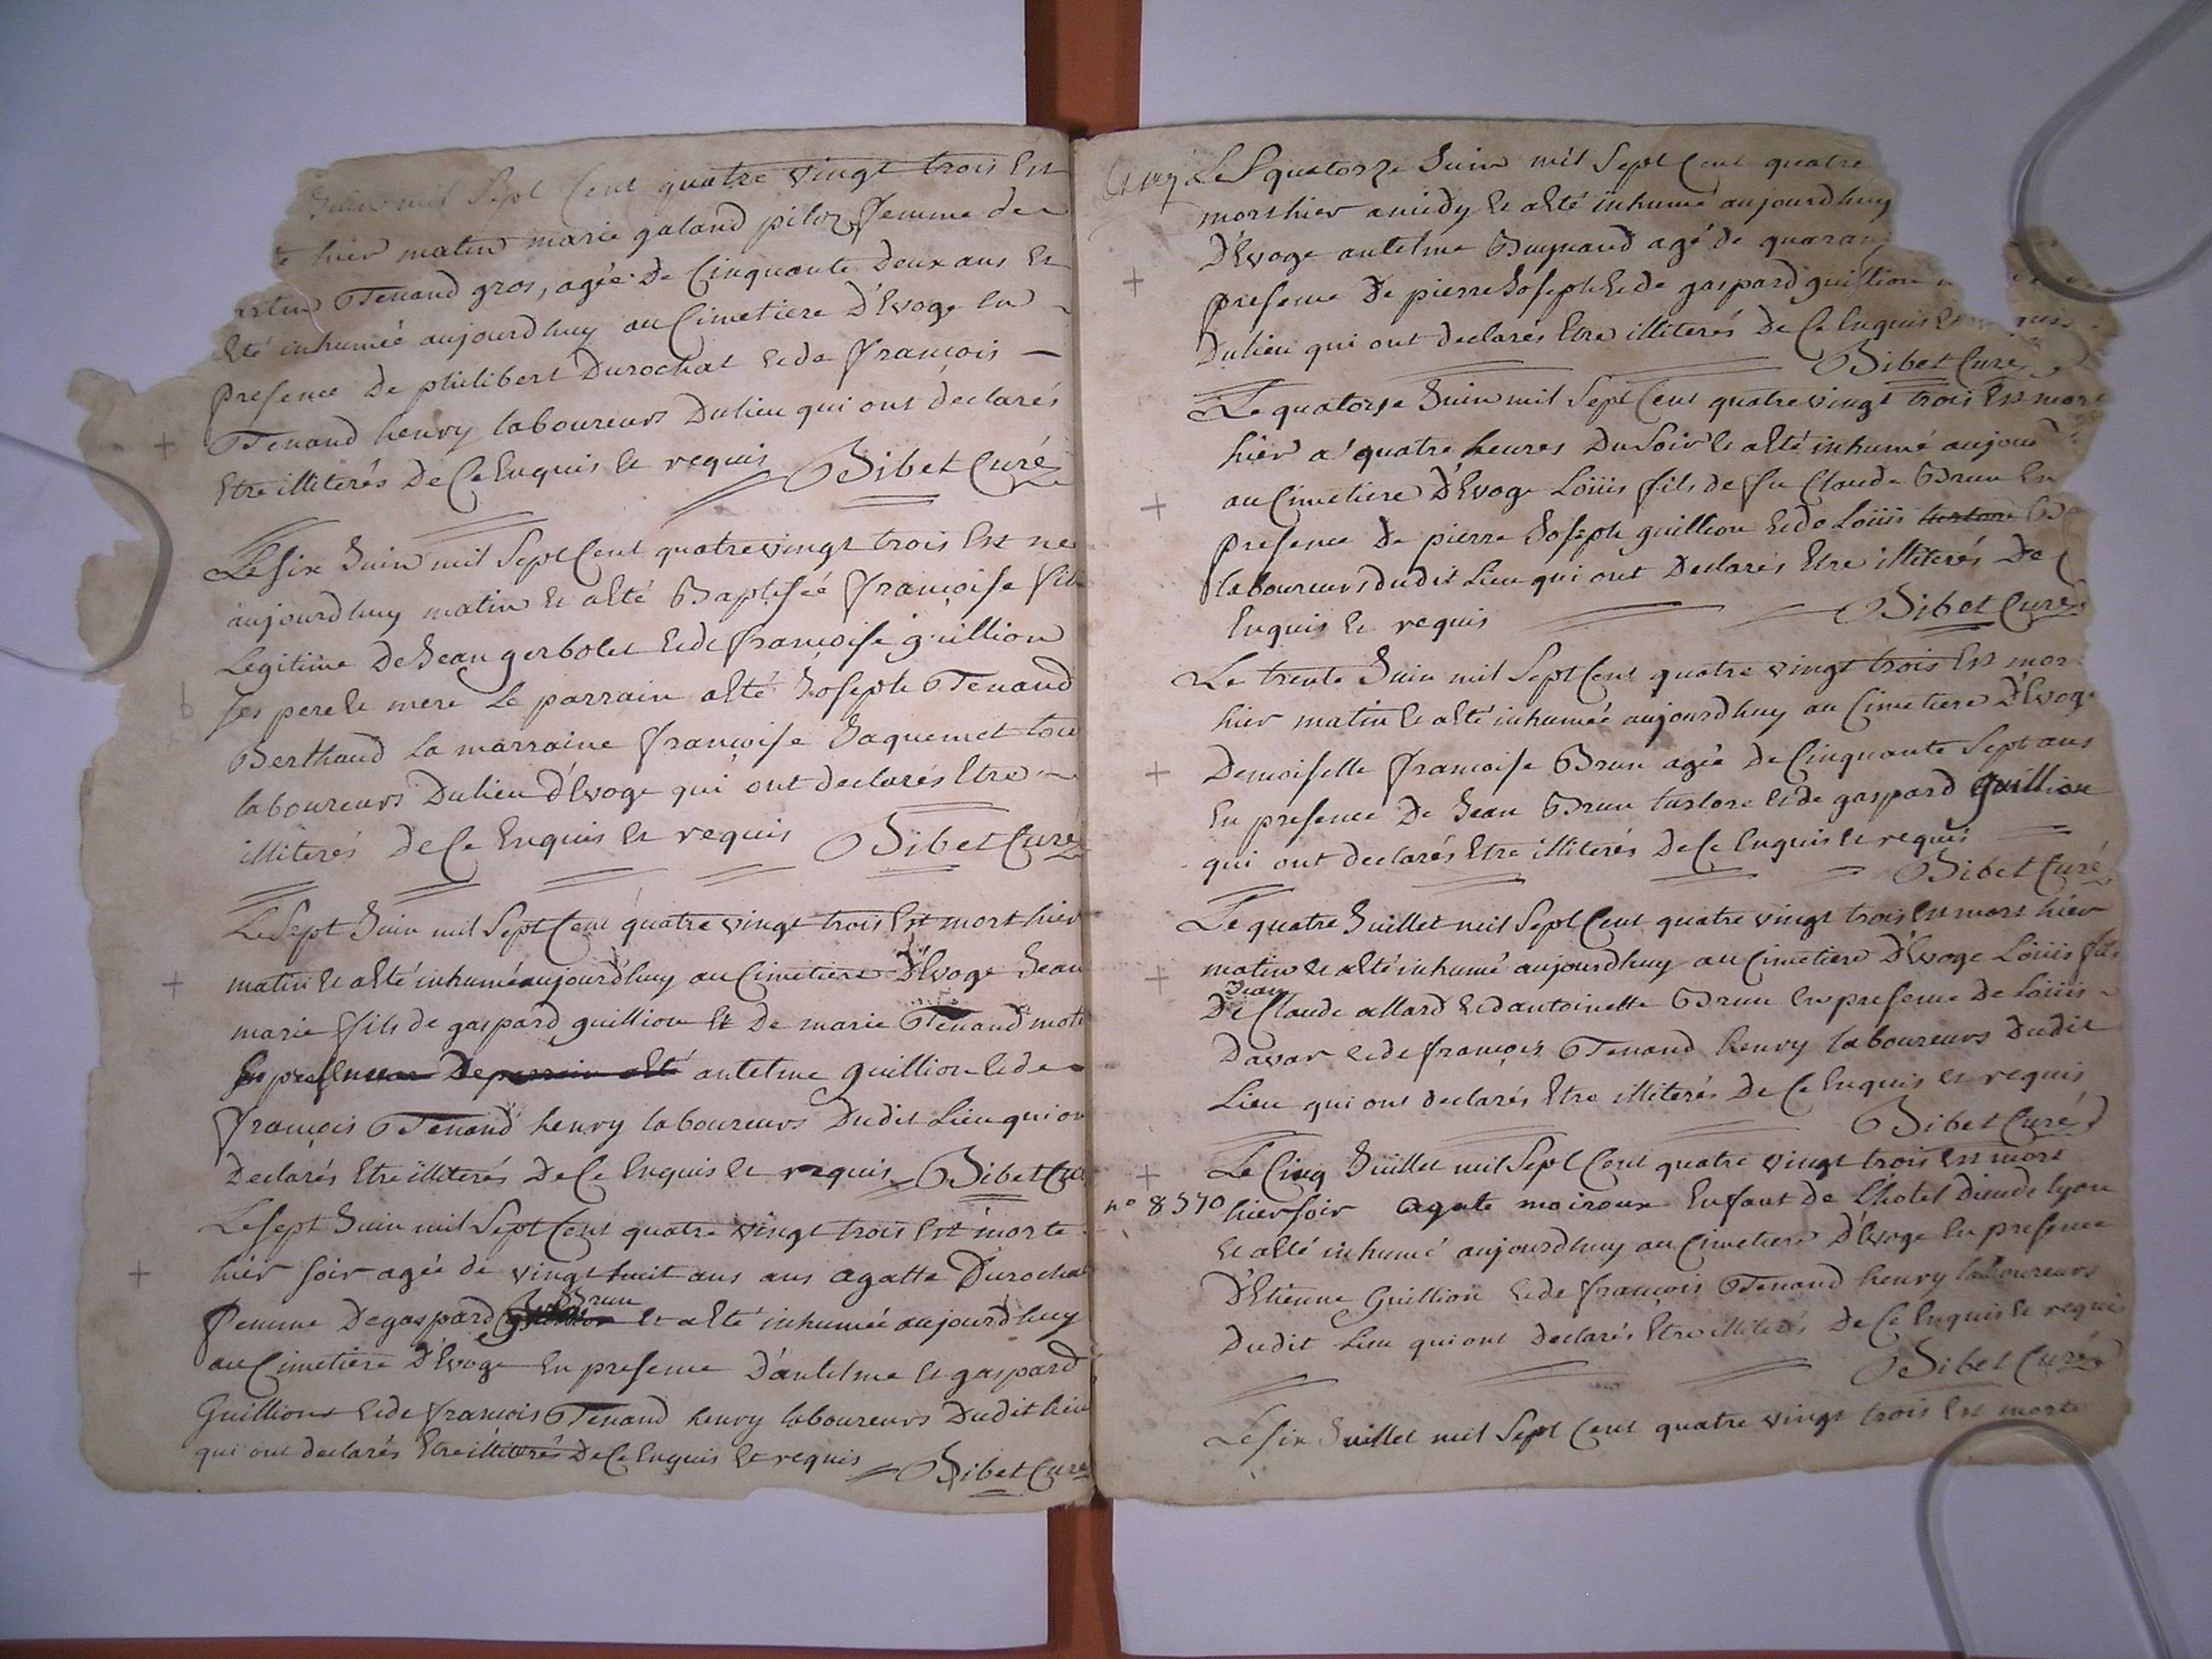 Juin mil Sept Cent quatre vingt trois Est
hier matin marie galand piloz femme de
Tenand gros, agée De Cinquante Deux ans Et
Eté inhumée aujourdhuy au Cimetiere D'Evoge En
presence De philibert Durochat Et de françois
Tenand henry laboureurs Dulieu qui ont déclarés
Etre illiterés De Ce Enquis Et requis Bibet Curé
Le six Juin mil Sept Cent quatre vingt trois Est ne
aujourdhuy matin Et a Eté Baptisée françoise fill
Legitime De Jean gerbolet Et de françoise guillion
ses pere Et mere Le parrain a Eté Joseph Tenand
Berthaud La marraine françoise Jaquemet tou
laboureurs Dulieu d'Evoge qui ont declarés Etre
illiterés De Ce Enquis Et requis Bibet Curé
Le Sept Juin mil Sept Cent quatre vingt trois Est mort hier
matin Et a Eté inhumé aujourd'huy au Cimetiere D'Evoge Jean
marie fils de gaspard guillion Et De marie Tenand mot
En presence De parrain a Eté antelme guillion Et de
françois Tenand henry laboureurs Dudit Lieu qui on
Declarés Etre illiterés De Ce Enquis Et requis Bibet Cu
Le sept Juin mil Sept Cent quatre vingt trois Est morte
hier soir agée de vingt huit ans ans agatte Durocha
femme De gaspard Brun Et a Eté inhumée aujourd'huy
au Cimetiere D'Evoge En presence D'antelme Et gaspard
Guillion Et de françois Tenand henry laboureurs Dudit lieu
qui ont declarés Etre illiterés De Ce Enquis Et requis Bibet Curé
Le quatorze Juin mil Sept Cent quatre
mort hier a midy Et a Eté inhumé aujourdhuy
D'Evoge antelme Buynand agé de quaran
presence De pierre Joseph Et de gaspard guillion
Dulieu qui ont declarés Etre illiterés De Ce Enquis Et
Bibet Curé
Le quatorze Juin mil Sept Cent quatre vingt trois Est mort
hier a quatre heures Du soir Et a Eté inhumé aujour
au Cimetiere D'Evoge Loüis fils de fu Claude Brun En
presence De pierre Joseph guillion Et de Loüis tustore
laboureurs dudit Lieu qui ont Declarés Etre illiterés De
Enquis Et requis Bibet Curé
Le trente Juin mil Sept Cent quatre vingt trois Est mor
hier matin Et a Eté inhumée aujourdhuy au Cimetiere D'Evoge
Demoiselle françoise Brun agée De Cinquante Sept ans
En presence De Jean Brun tustore Et de gaspard guillion
qui ont declarés Etre illiterés De Ce Enquis Et requis
Bibet Curé
Le quatre Juillet mil Sept Cent quatre vingt trois Est mort hier
matin Et a Eté inhumé aujourdhuy au Cimetiere D'Evoge Loüis fils
Jean
De Claude allard Et d'antoinette Brun En presence De Loüis
Davar Et de françois Tenand henry laboureurs Dudit
Lieu qui ont declarés Etre illiterés De Ce Enquis Et requis
Bibet Curé
Le Cinq Juillet mil Sept Cent quatre vingt trois Est mort
n° 8570 hier soir agate moiroux Enfant de L'hotel dieu de lyon
Et a Eté inhumé aujourdhuy au Cimetiere D'Evoge En presence
D'Etienne Guillion Et de françois Tenand henry laboureurs
Dudit Lieu qui ont Declarés Etre illiterés De Ce Enquis Et requis
Bibet Curé
Le six Juillet mil Sept Cent quatre vingt trois Est morte